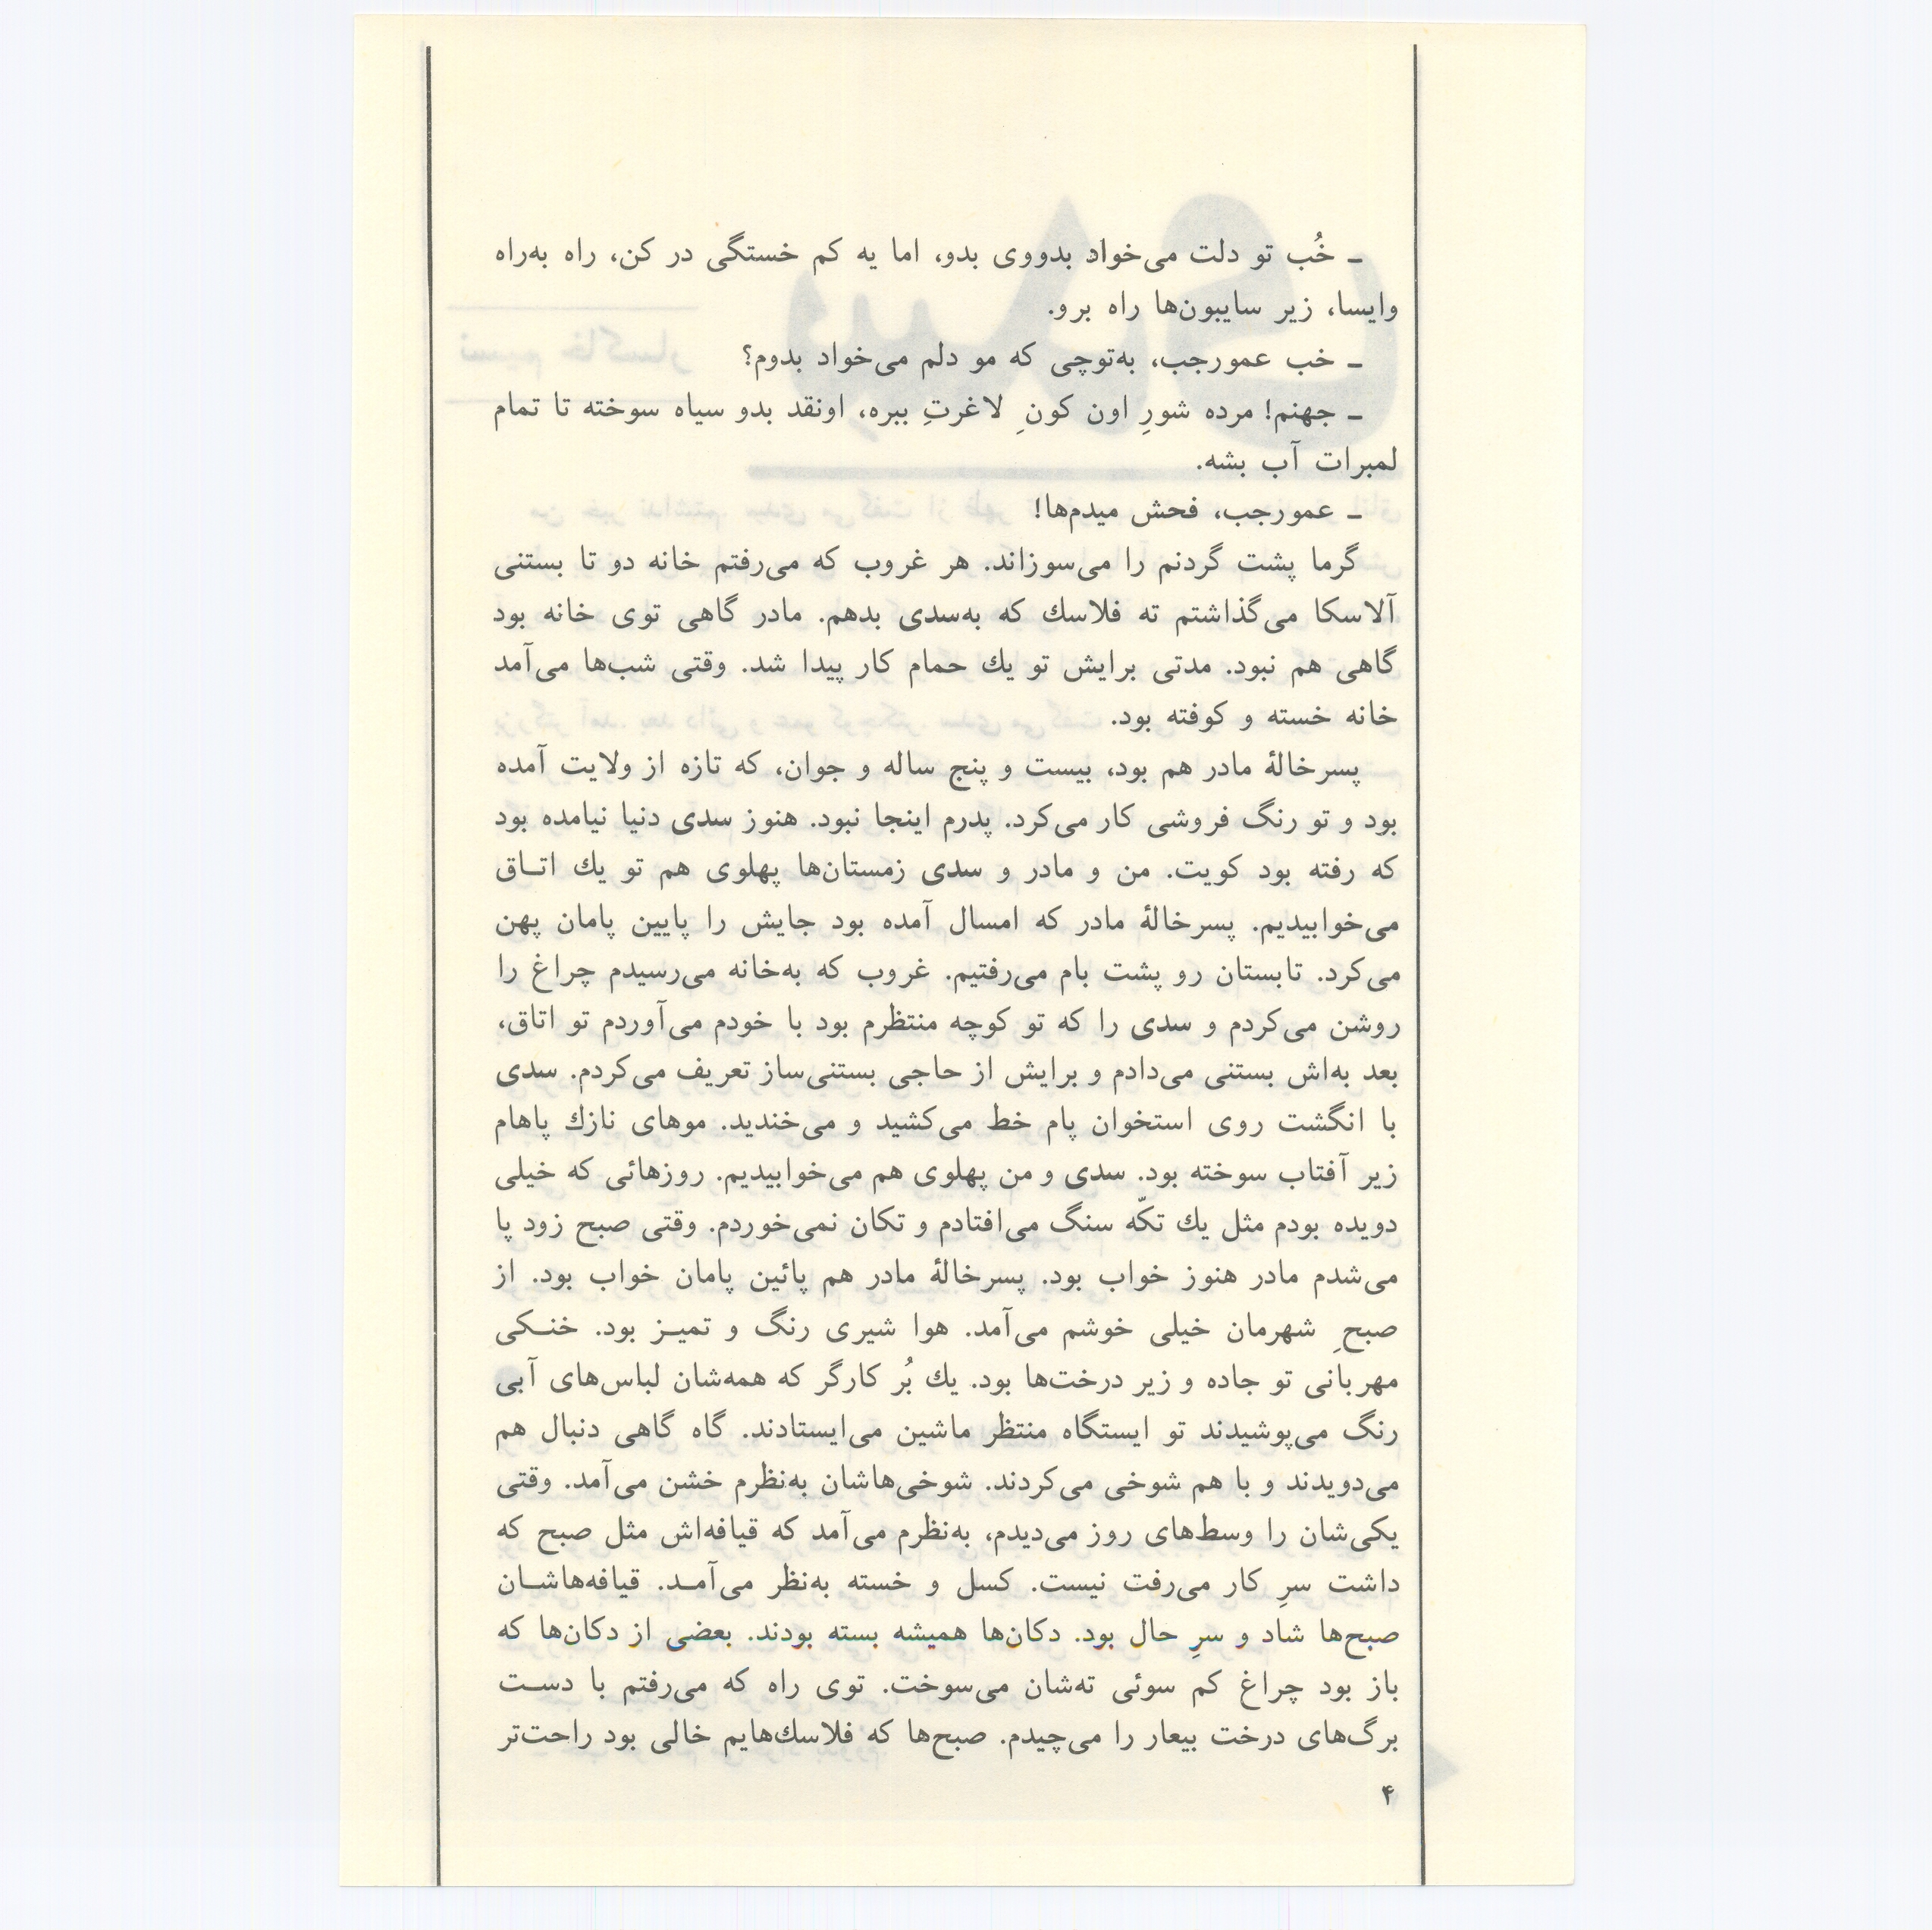 ـ خُب تو دلت می‌خواد بدووی بدو، اما یه کم خستگی در کن، راه به‌راه
وایسا، زیر سایبون‌ها راه برو.
ـ خب عمورجب، به‌توچی که مو دلم می‌خواد بدوم؟
ـ جهنم! مرده شورِ اون کونِ لاغرتِ ببره، اونقد بدو سیاه سوخته تا تمام
لمبرات آب بشه.
ـ عمورجب، فحش میدم‌ها!
گرما پشت گردنم را می‌سوزاند. هر غروب که می‌رفتم خانه دو تا بستنی
آلاسکا می‌گذاشتم ته فلاسك که به‌سدی بدهم. مادر گاهی توی خانه بود
گاهی هم نبود. مدتی برایش تو یك حمام کار پیدا شد. وقتی شب‌ها می‌آمد
خانه خسته و کوفته بود.
پسرخالهٔ مادر هم بود، بیست و پنج ساله و جوان، که تازه از ولایت آمده
بود و تو رنگ فروشی کار می‌کرد. پدرم اینجا نبود. هنوز سدی دنیا نیامده بود
که رفته بود کویت. من و مادر و سدی زمستان‌ها پهلوی هم تو یك اتـاق
می‌خوابیدیم. پسرخالهٔ مادر که امسال آمده بود جایش را پایین پامان پهن
می‌کرد. تابستان رو پشت بام می‌رفتیم. غروب که به‌خانه می‌رسیدم چراغ را
روشن می‌کردم و سدی را که تو کوچه منتظرم بود با خودم می‌آوردم تو اتاق،
بعد به‌اش بستنی می‌دادم و برایش از حاجی بستنی‌ساز تعریف می‌کردم. سدی
با انگشت روی استخوان پام خط می‌کشید و می‌خندید. موهای نازك پاهام
زیر آفتاب سوخته بود. سدی و من پهلوی هم می‌خوابیدیم. روزهائی که خیلی
دویده بودم مثل یك تکّه سنگ می‌افتادم و تکان نمی‌خوردم. وقتی صبح زود پا
می‌شدم مادر هنوز خواب بود. پسرخالهٔ مادر هم پائین پامان خواب بود. از
صبحِ شهرمان خیلی خوشم می‌آمد. هوا شیری رنگ و تمیـز بود. خنـکی
مهربانی تو جاده و زیر درخت‌ها بود. یك بُر کارگر که همه‌شان لباس‌های آبی
رنگ می‌پوشیدند تو ایستگاه منتظر ماشین می‌ایستادند. گاه گاهی دنبال هم
می‌دویدند و با هم شوخی می‌کردند. شوخی‌هاشان به‌نظرم خشن می‌آمد. وقتی
یکی‌شان را وسط‌های روز می‌دیدم، به‌نظرم می‌آمد که قیافه‌اش مثل صبح که
داشت سرِ کار می‌رفت نیست. کسل و خسته به‌نظر می‌آمـد. قیافه‌هاشـان
صبح‌ها شاد و سرِ حال بود. دکان‌ها همیشه بسته بودند. بعضی از دکان‌ها که
باز بود چراغ کم سوئی ته‌شان می‌سوخت. توی راه که می‌رفتم با دسـت
برگ‌های درخت بیعار را می‌چیدم. صبح‌ها که فلاسك‌هایم خالی بود راحت‌تر
۴